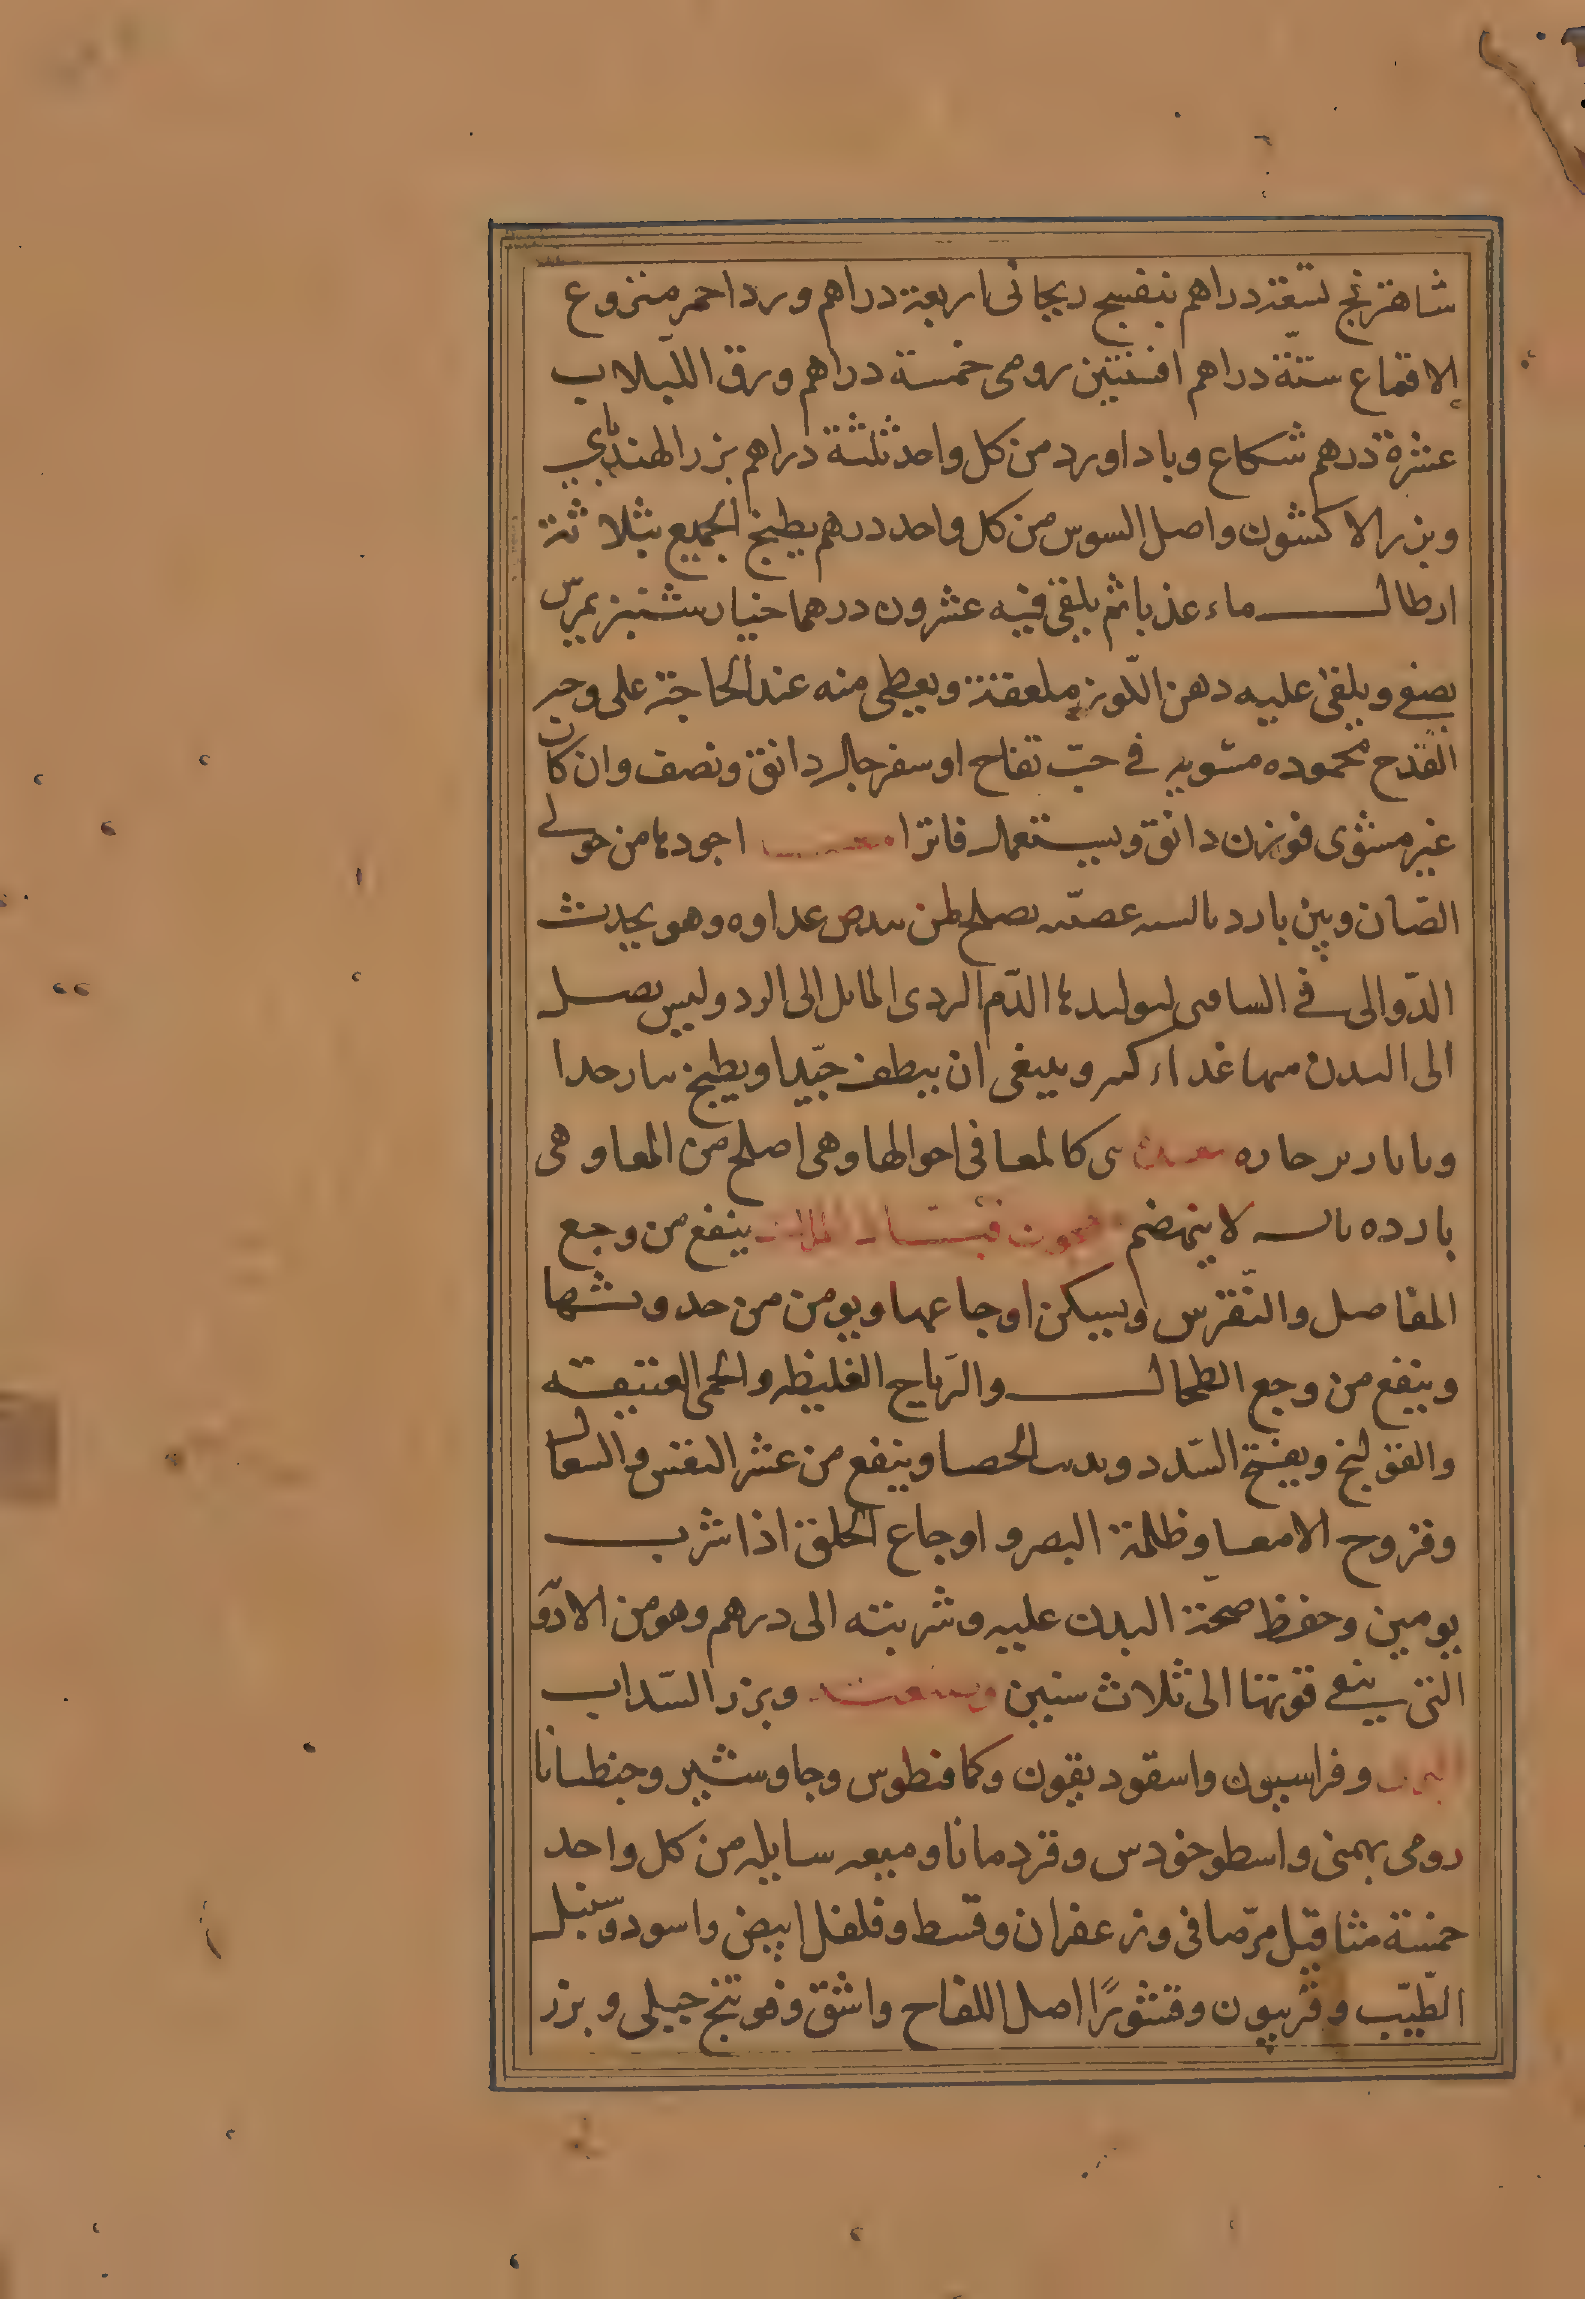 شاهترنج تسعة دراهم بنفسج ريحانى اربعة دراهم ورد احمر منزوع
الاقماع ستّة دراهم افسنتين رومى خمسة دراهم ورق اللبلاب
عشرة درهم شكاع وباداورد من كل واحد ثلثة دراهم بزر الهندباى
وبزر الاكشون واصل السوس من كل واحد درهم يطبخ الجميع بثلاثة
ارطال ماء عذبا ثم يلقى فيه عشرون درهما خيارشنبر يمرس
يصفى ويلقى عليه دهن اللّوز ملعقة ويعطى منه عند الحاجة على وجه
القدح محموده مشويه فى حبّ تفاح او سفرجال دانق ونصف وان كان
غير مشوى فوزن دانق ويستعمل فاترا اجودها من حولى
الضان وبين بارد يابسه عصبيّه يصلح لمن وهو يحدث
الدّوالى فى لتوليدها الدّم الردى المايل الى ليس يصل
الى البدن منها غداء كثير وينبغى ان ينظف جيّدا ويطبخ
حاره كالمعا فى احوالها وهى اصلح من المعا وهى
بارده يابسه لا ينهضم معجون ينفع من وجع
المفاصل والنّقرس ويسكن اوجاعها ويومن من حدوثها
وينفع من وجع الطحال والرّياح الغليظه والحمى العتيقه
والقولنج ويفتح السّدد الحصا وينفع من عسر النفس والسعال
وقروح الامعا وظلمة البصر واوجاع الحلق اذا شرب
يومين وحفظ صحّة البدن عليه وشربته الى درهم وهو من الادو
التى يبقى قوتها الى ثلاث سنين وبزر السّداب
وفراسيون واسقوديقون وكمافيطوس وجاوشير وجنطيانا
رومى بهمنى واسطوخودس وقردمانا وميعه سايله من كل واحد
خمسة مثاقيل مرّصافى وزعفران وقسط وفلفل ابيض واسود وسنبل
الطيّب وفربيون وقشورًا اصل اللفاح واشق وفوتنج جبلى وبزر